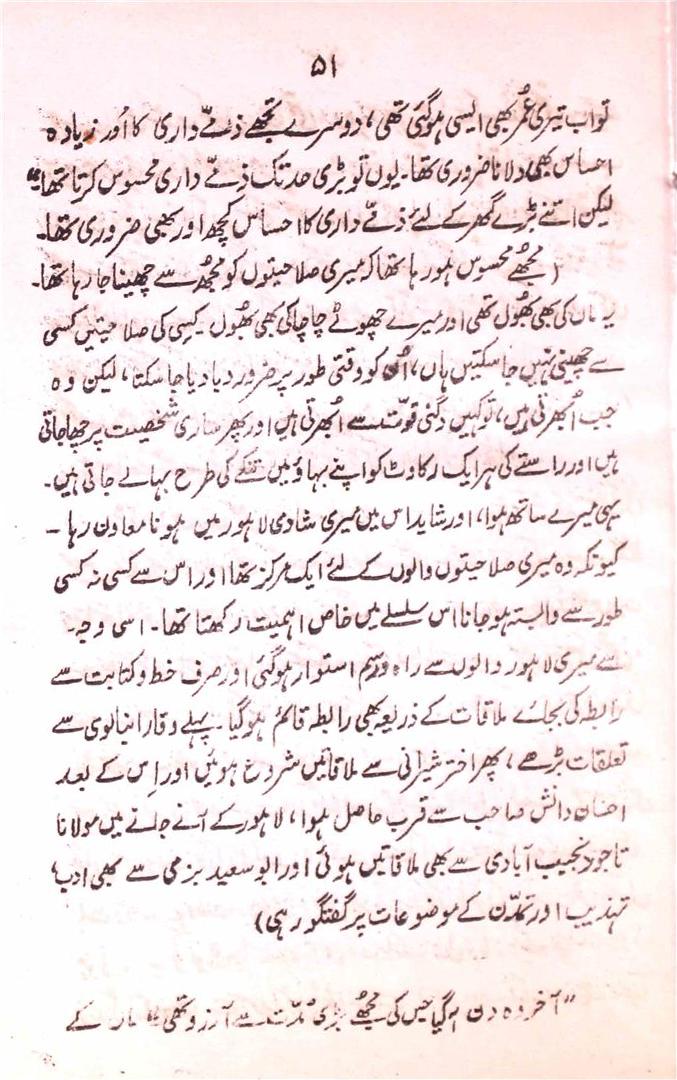 ۵۱
تو اب تیری عمُر بھی ایسی ہو گئی تھی، دوسرے تجھے ذمّے داری کا اَور زیادہ
احساس بھی دلانا ضروری تھا۔ یوں تو بڑی حد تک ذمّے داری محسوس کرتا تھا"
لیکن اتنے بڑے گھر کے لئے ذمّے داری کا احساس کچھ اور بھی ضروری تھا۔
(مجھے محسوس ہو رہا تھا کہ میری صلاحیتوں کو مجھُ سے چھینا جا رہا تھا۔
یہ ماں کی بھی بھُول تھی اور میرے چھوٹے چاچا کی بھی بھُول۔ کسِی کی صلاحیتیں کسی
سے چھینی نہیں جا سکتیں ہاں، اُن کو وقتی طور پر ضرور دبا دیا جا سکتا، لیکن وہ
جب اُبھرتی ہیں، تو کہیں دگنی قوّت سے اُبھرتی ہیں اور پھر ساری شخصیت پر چھا جاتی
ہیں اور راستے کی ہر ایک رکاوٹ کو اپنے بہاؤ میں تنکے کی طرح بہا لے جاتی ہیں۔
یہی میرے ساتھ ہوا، اور شاید اس میں میری شادی لاہور میں ہونا معاون رہا۔
کیونکہ وہ میری صلاحیتوں والوں کے لئے ایک مرکز تھا اور اس سے کسی نہ کسی
طور سے وابستہ ہو جانا اس سلسلے میں خاص اہمیت رکھتا تھا۔ اسی وجہ
سے میری لاہور والوں سے راہ و رسم استوار ہو گئی اور صرف خط و کتابت سے
رابطہ کی بجائے ملاقات کے ذریعہ بھی رابطہ قائم ہو گیا۔ پہلے وقار انبالوی سے
تعلقات بڑھے، پھر اختر شیرانی سے ملاقاتیں شروع ہوئیں اور اِس کے بعد
احسان دانش صاحب سے قرب حاصل ہوا، لاہور کے آنے جانے میں مولانا
تاجور نجیب آبادی سے بھی ملاقاتیں ہوئی اور ابو سعید بزمی سے بھی ادب،
تہذیب اور تمدّن کے موضوعات پر گفتگو رہی)
"آخر وہ دن آ گیا جس کی مجھے بڑی مُدّت سے آرزو تھی" ماں کے